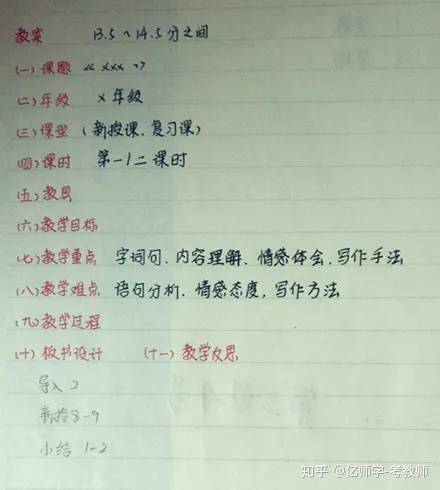 教案 13.5~14.5分之间
(一)课题 《×××》
(二)年级 ×年级
(三)课型 (新授课、复习课)
(四)课时 第一/二课时
(五)教具
(六)教学目标
(七)教学重点 字词句、内容理解、情感体会、写作手法
(八)教学难点 语句分析、情感态度、写作方法
(九)教学过程
(十)板书设计 (十一)教学反思
导入 2
新授 8-9
小结 1-2
知乎 @亿师学-考教师